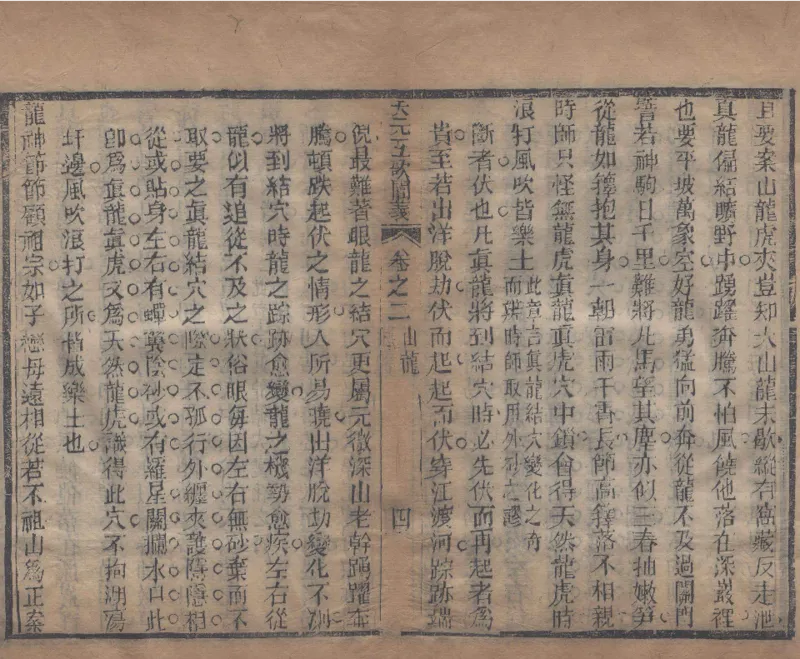 且要案山龍虎夾豈知大山龍未歇縱有窩藏反走泄
真龍偏結曠野中踴躍奔騰不怕風饒他落在深叢裡
也要平坡萬象空好龍勇猛向前奔從龍不及過關門
譬若神駒日千里難將凡馬望其塵亦似三春抽嫩笋
從龍如籜抱其身一朝雷雨干霄長師高籜落不相親
時師只怪無龍虎真龍眞虎穴中鎖會得天然龍虎時
浪打風吹皆樂土
此章言眞龍結穴變化之奇
而辨時師取用外砂之謬
斷者伏也凡眞龍將到結穴時必先伏而再起者爲
貴至若出洋脫劫伏而起起而伏穿江渡河踪跡端
天元五歌闡義
卷之二
山龍
四
倪最難著眼龍之結穴更屬元微深山老幹踴躍奔
騰頓跌起伏之情形人所易曉出洋脫劫變化不測
將到結穴時龍之踪跡愈變龍之機勢愈疾左右從
龍似有追從不及之狀俗眼每因左右無砂棄而不
取要之眞龍結穴之際定不孤行外纏夾護隱隱相
從或貼身左右有蟬翼陰砂或有羅星關攔水口此
卽爲眞龍眞虎又爲天然龍虎識得此穴不拘湖蕩
圩邊風吹浪打之所皆成樂土也
龍神節節顧祖宗如子戀母遠相從若不祖山爲正案